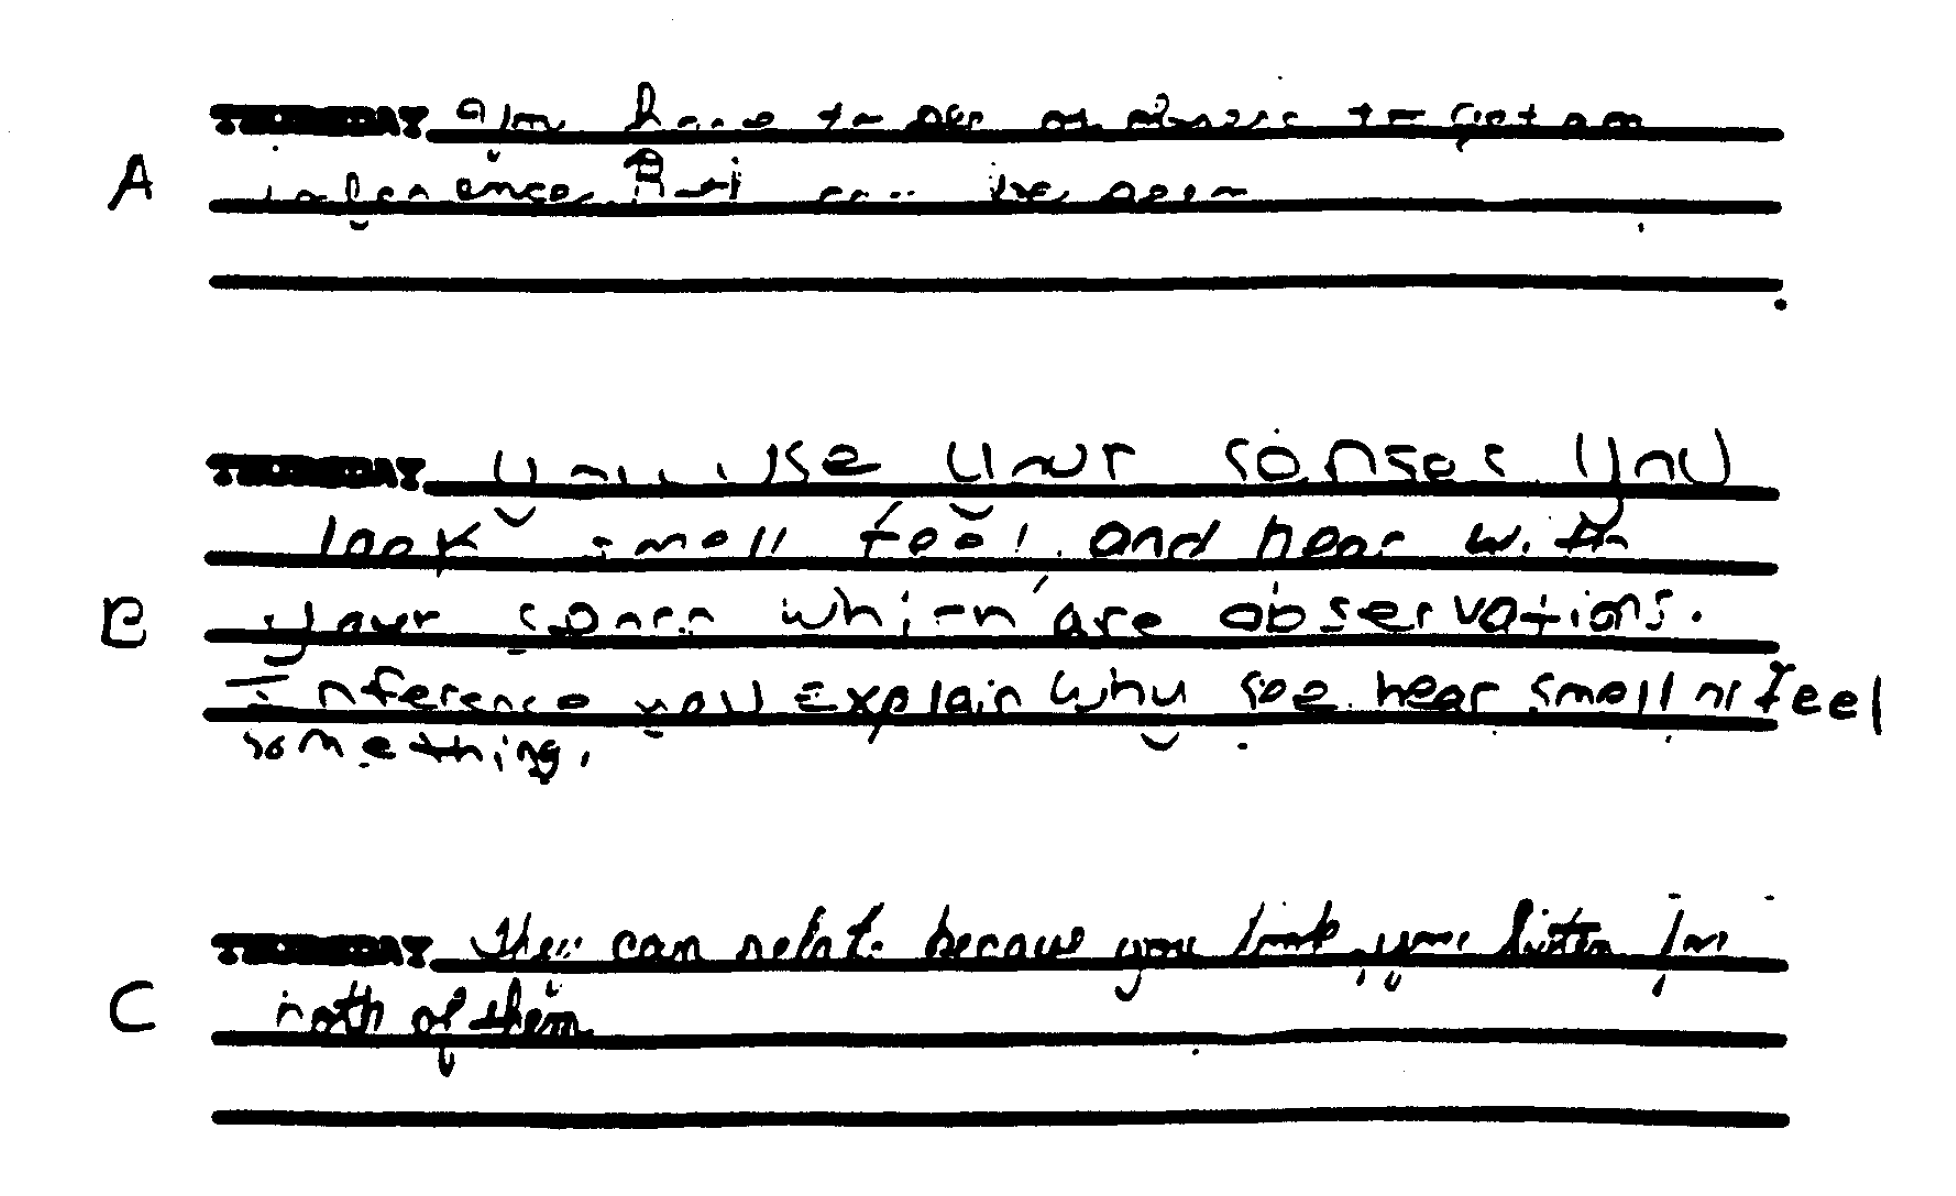 THURSDAY You have to see or observe to get an
A inference. But can be seen
THURSDAY You use your senses. You
look smell feel, and hear with
B your sense which are observations.
Inference you explain why see. hear smell or feel
something.
THURSDAY They can relate because you look, you listen for
C both of them